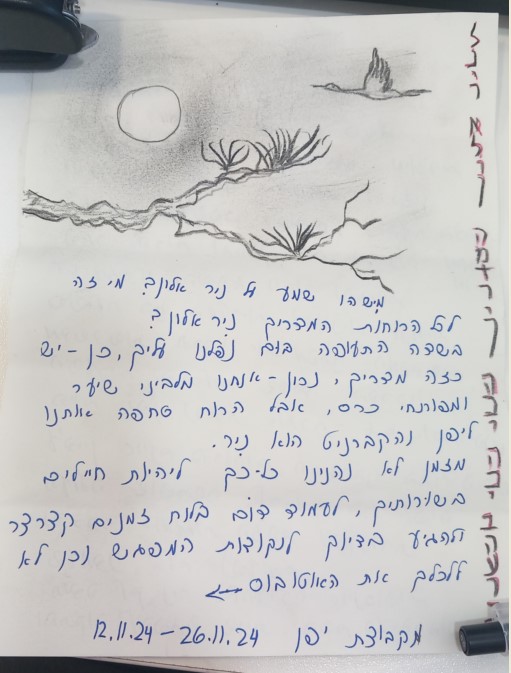 מישהו שמע על ניר אלון? מי זה
לכל הרוחות המדריך ניר אלון?
בשדה התעופה בום נפלנו עליך, כן-יש
כזה מדריך, נכון-אנחנו מלביני שיער
ומפותחי כרס, אבל הרוח סחפה אותנו
ליפן והקברניט הוא ניר.
מזמן לא נהנינו כל-כך להיות חיילים
בשירותיך, לעמוד דום בלוח זמנים קצרצר
ולהגיע בדיוק לנקודות המפגש וכן לא
ללכלך את האוטובוס ←
מקבוצת יפן 12.11.24-26.11.24
ניר אלון המדריך